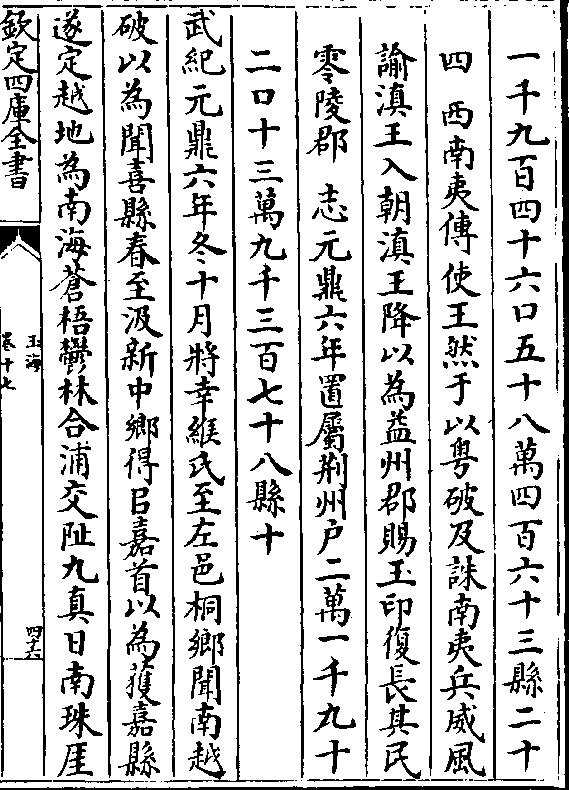 一千九百四十六口五十八萬四百六十三縣二十
四　西南夷傳使王然于以粤破及誅南夷兵威風
諭滇王入朝滇王降以為益州郡賜王印復長其民
零陵郡　志元鼎六年置屬荆州户二萬一千九十
二口十三萬九千三百七十八縣十
武紀元鼎六年冬十月將幸緱氏至左邑桐鄉聞南越
破以為聞喜縣春至汲新中鄉得吕嘉首以為獲嘉縣
遂定越地為南海蒼梧鬱林合浦交阯九真日南珠厓
欽定四庫全書
玉海
卷十七
四十六